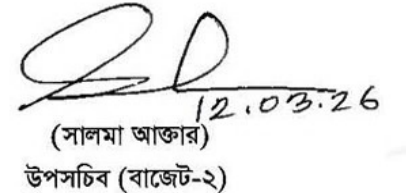 12.03.26
(সালমা আক্তার)
উপসচিব (বাজেট-২)